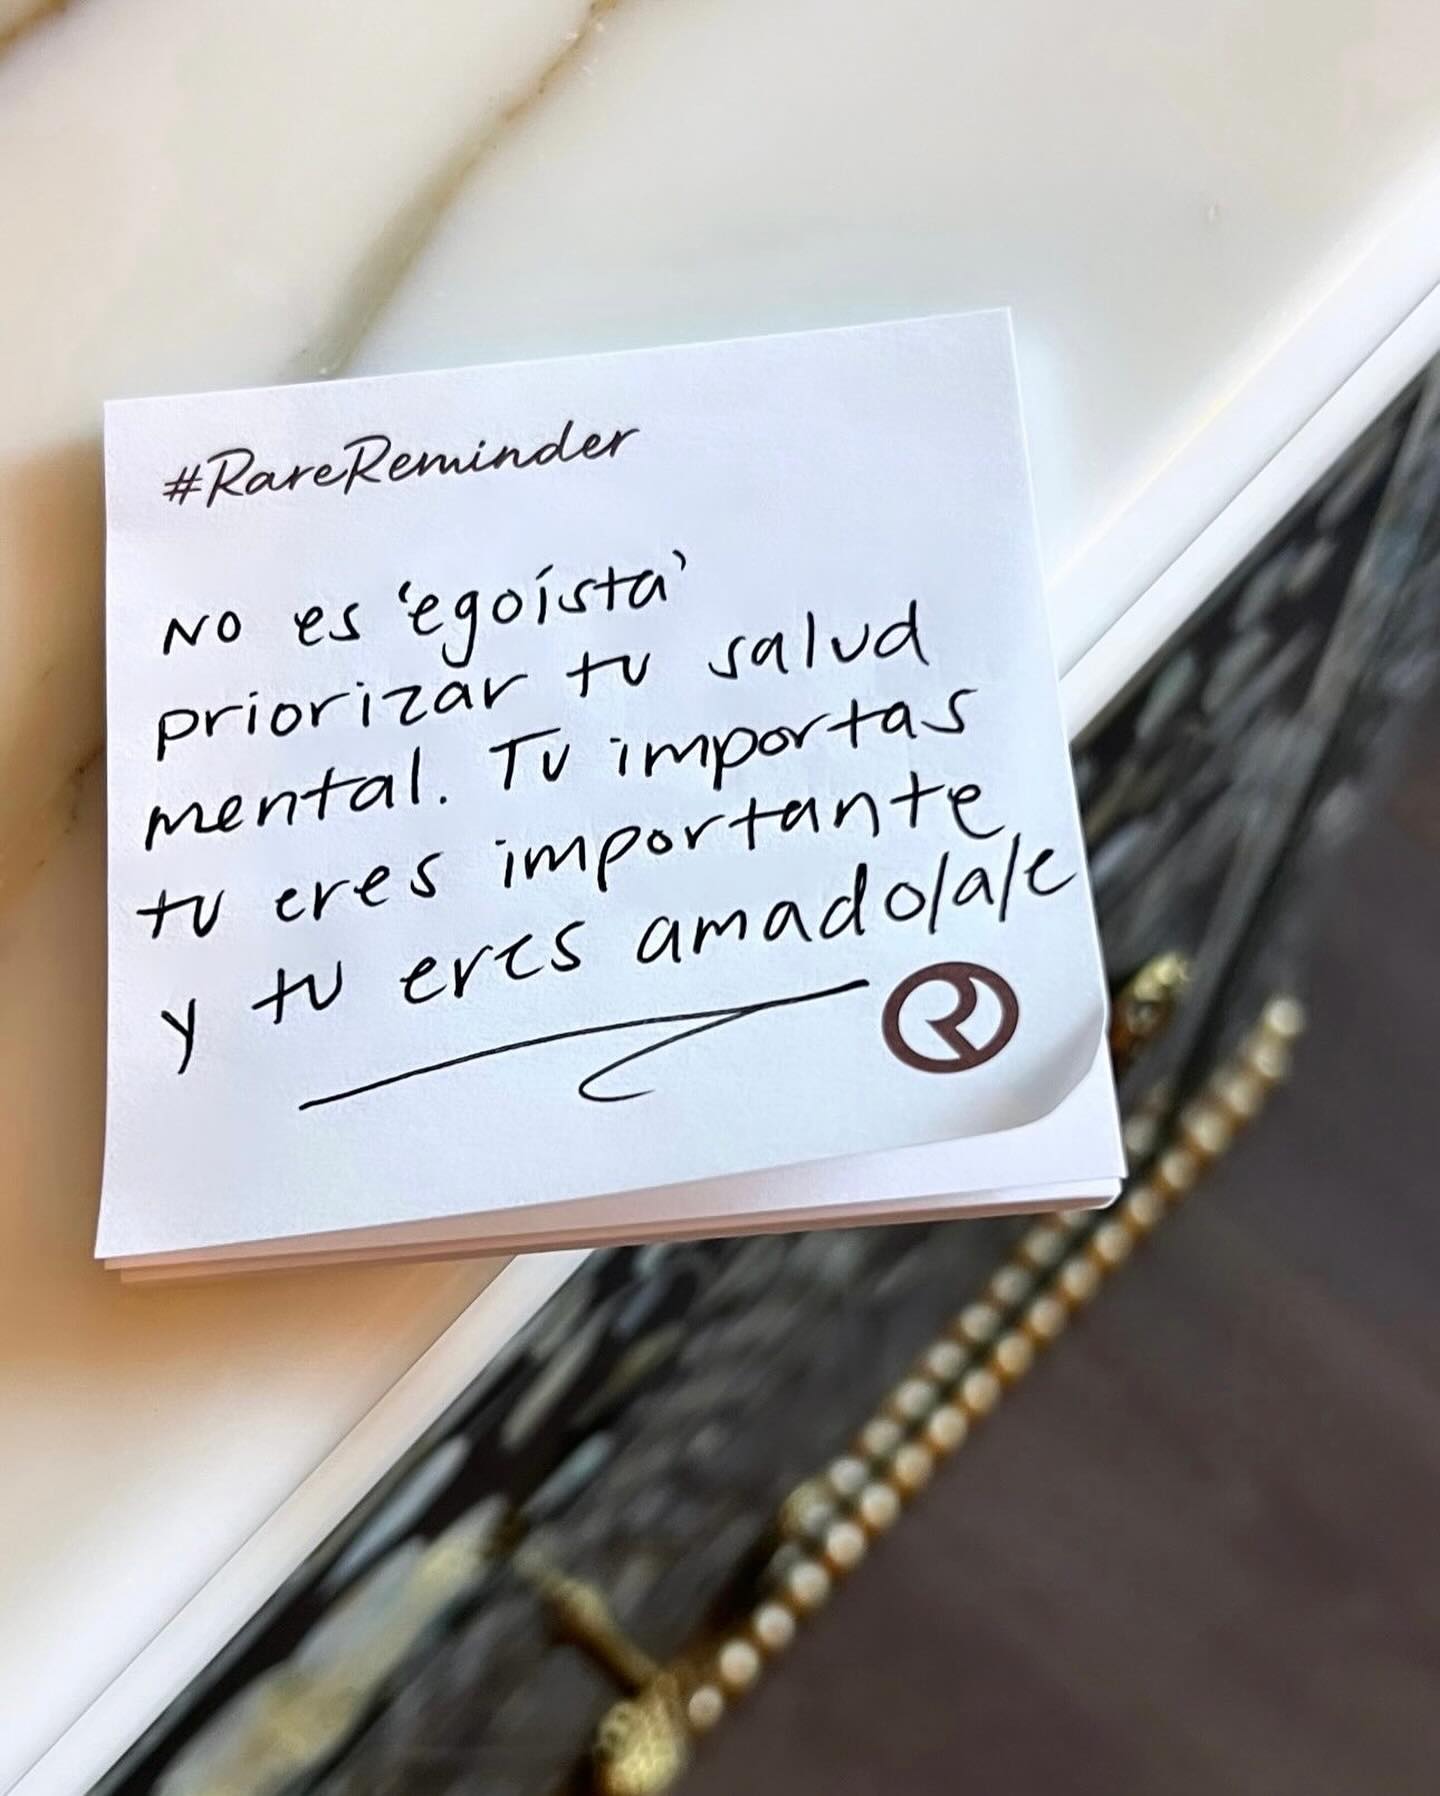 #RareReminder
No es 'egoísta'
priorizar tu salud
mental. Tu importas
tu eres importante
y tu eres amado/a/e
R